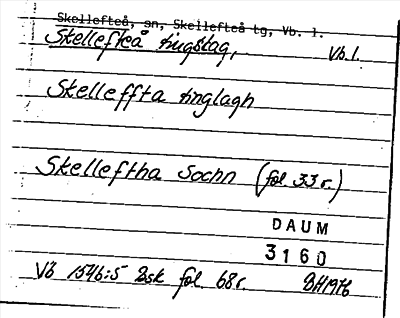 Skellefteå, sn, Skellefteå tg, Vb. l.
Skellefteå tingslag, Vb.l.
Skelleffta tinglagh
Skelleftha Sochn (fol. 33 r.)
DAUM
3160
Vb 1546:5 Bsk fol 68r. BH1976